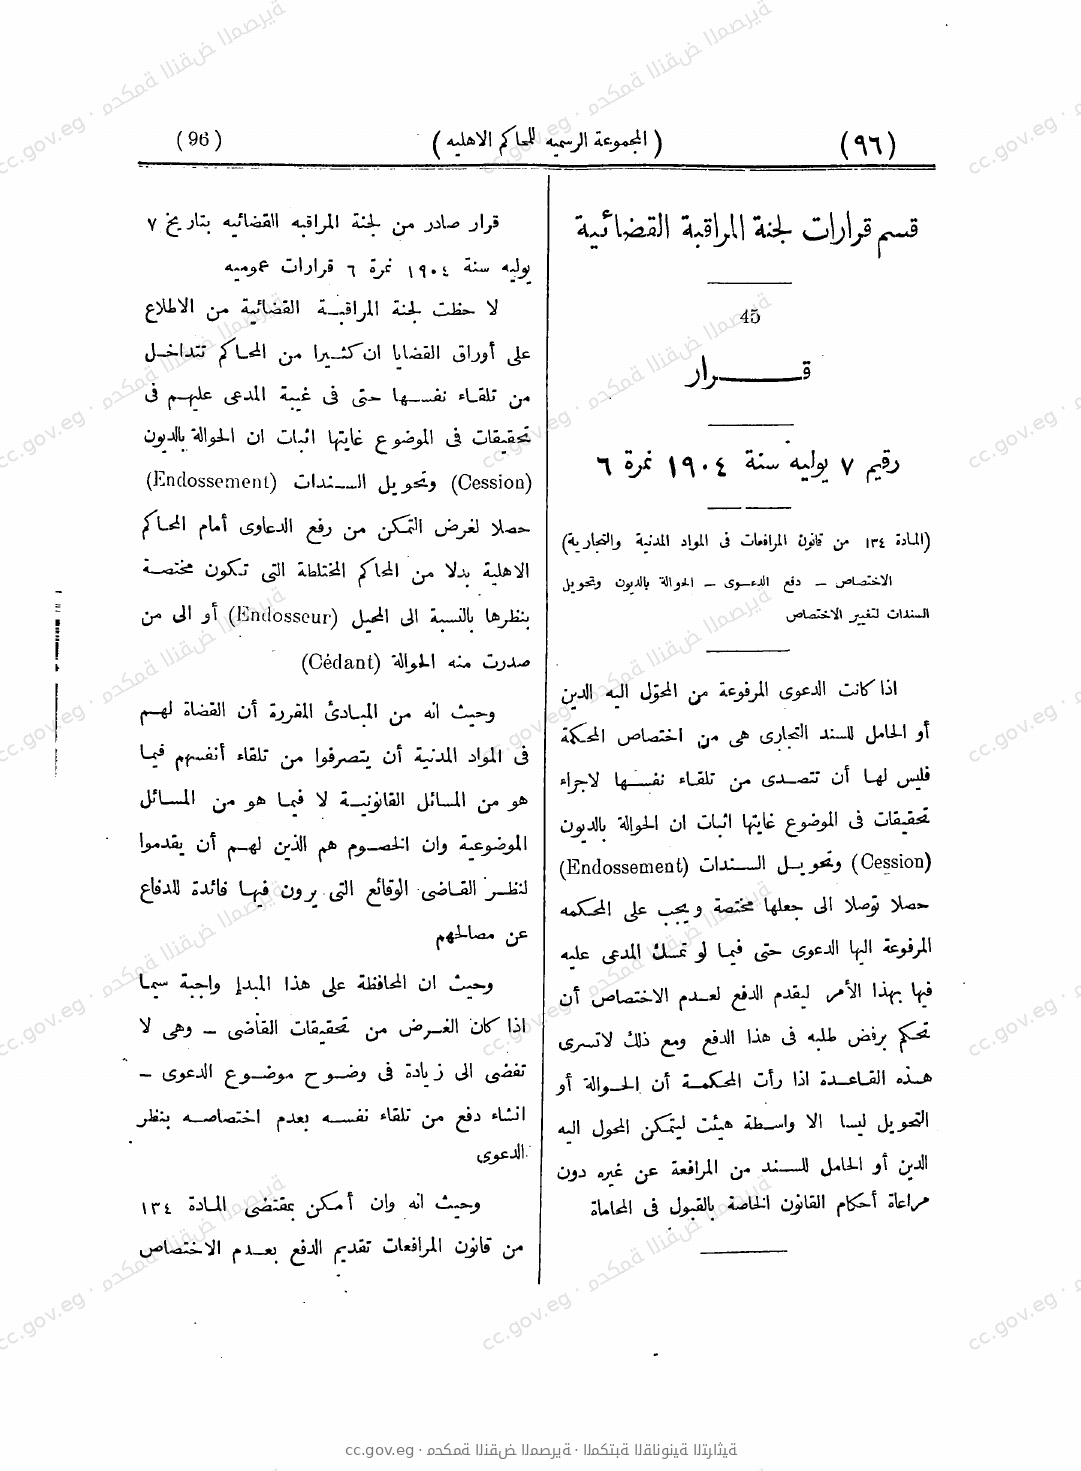 (٩٦) (المجموعة الرسميه للمحاكم الاهليه) (96)
قسم قرارات لجنة المراقبة القضائية
45
قـــرار
رقيم ٧ يوليه سنة ١٩٠٤ نمرة ٦
(المادة ١٣٤ من قانون المرافعات فى المواد المدنية والتجارية)
الاختصاص – دفع الدعوى – الحوالة بالديون وتحويل
السندات لتغيير الاختصاص
اذا كانت الدعوى المرفوعة من المحوّل اليه الدين
أو الحامل للسند التجارى هى من اختصاص المحكمة
فليس لها أن تتصدى من تلقاء نفسها لاجراء
تحقيقات فى الموضوع غايتها اثبات ان الحوالة بالديون
(Cession) وتحويل السندات (Endossement)
حصلا توصلا الى جعلها مختصة ويجب على المحكمه
المرفوعة اليها الدعوى حتى فيما لو تمسك المدعى عليه
فيها بهذا الأمر ليقدم الدفع لعدم الاختصاص أن
تحكم برفض طلبه فى هذا الدفع ومع ذلك لاتسرى
هذه القاعدة اذا رأت المحكمة أن الحوالة أو
التحويل ليسا الا واسطة هيئت ليتمكن المحول اليه
الدين أو الحامل للسند من المرافعة عن غيره دون
مراعاة أحكام القانون الخاصة بالقبول فى المحاماة
قرار صادر من لجنة المراقبه القضائيه بتاريخ ٧
يوليه سنة ١٩٠٤ نمرة ٦ قرارات عموميه
لاحظت لجنة المراقبة القضائية من الاطلاع
على أوراق القضايا ان كثيرا من المحاكم تتداخل
من تلقاء نفسها حتى فى غيبة المدعى عليهم فى
تحقيقات فى الموضوع غايتها اثبات ان الحوالة بالديون
(Cession) وتحويل السندات (Endossement)
حصلا لغرض التمكن من رفع الدعاوى أمام المحاكم
الاهلية بدلا من المحاكم المختلطة التى تكون مختصة
بنظرها بالنسبة الى المحيل (Endosseur) أو الى من
صدرت منه الحوالة (Cédant)
وحيث انه من المبادئ المقررة أن القضاة لهم
فى المواد المدنية أن يتصرفوا من تلقاء أنفسهم فيما
هو من المسائل القانونية لا فيما هو من المسائل
الموضوعية وان الخصوم هم الذين لهم أن يقدموا
لنظر القاضى الوقائع التى يرون فيها فائدة للدفاع
عن مصالحهم
وحيث ان المحافظة على هذا المبدإ واجبة سيما
اذا كان الغرض من تحقيقات القاضى – وهى لا
تفضى الى زيادة فى وضوح موضوع الدعوى –
انشاء دفع من تلقاء نفسه بعدم اختصاصه بنظر
الدعوى
وحيث انه وان أمكن بمقتضى المادة ١٣٤
من قانون المرافعات تقديم الدفع بعدم الاختصاص
cc.gov.eg · محكمة النقض المصرية · المكتبة القانونية التراثية